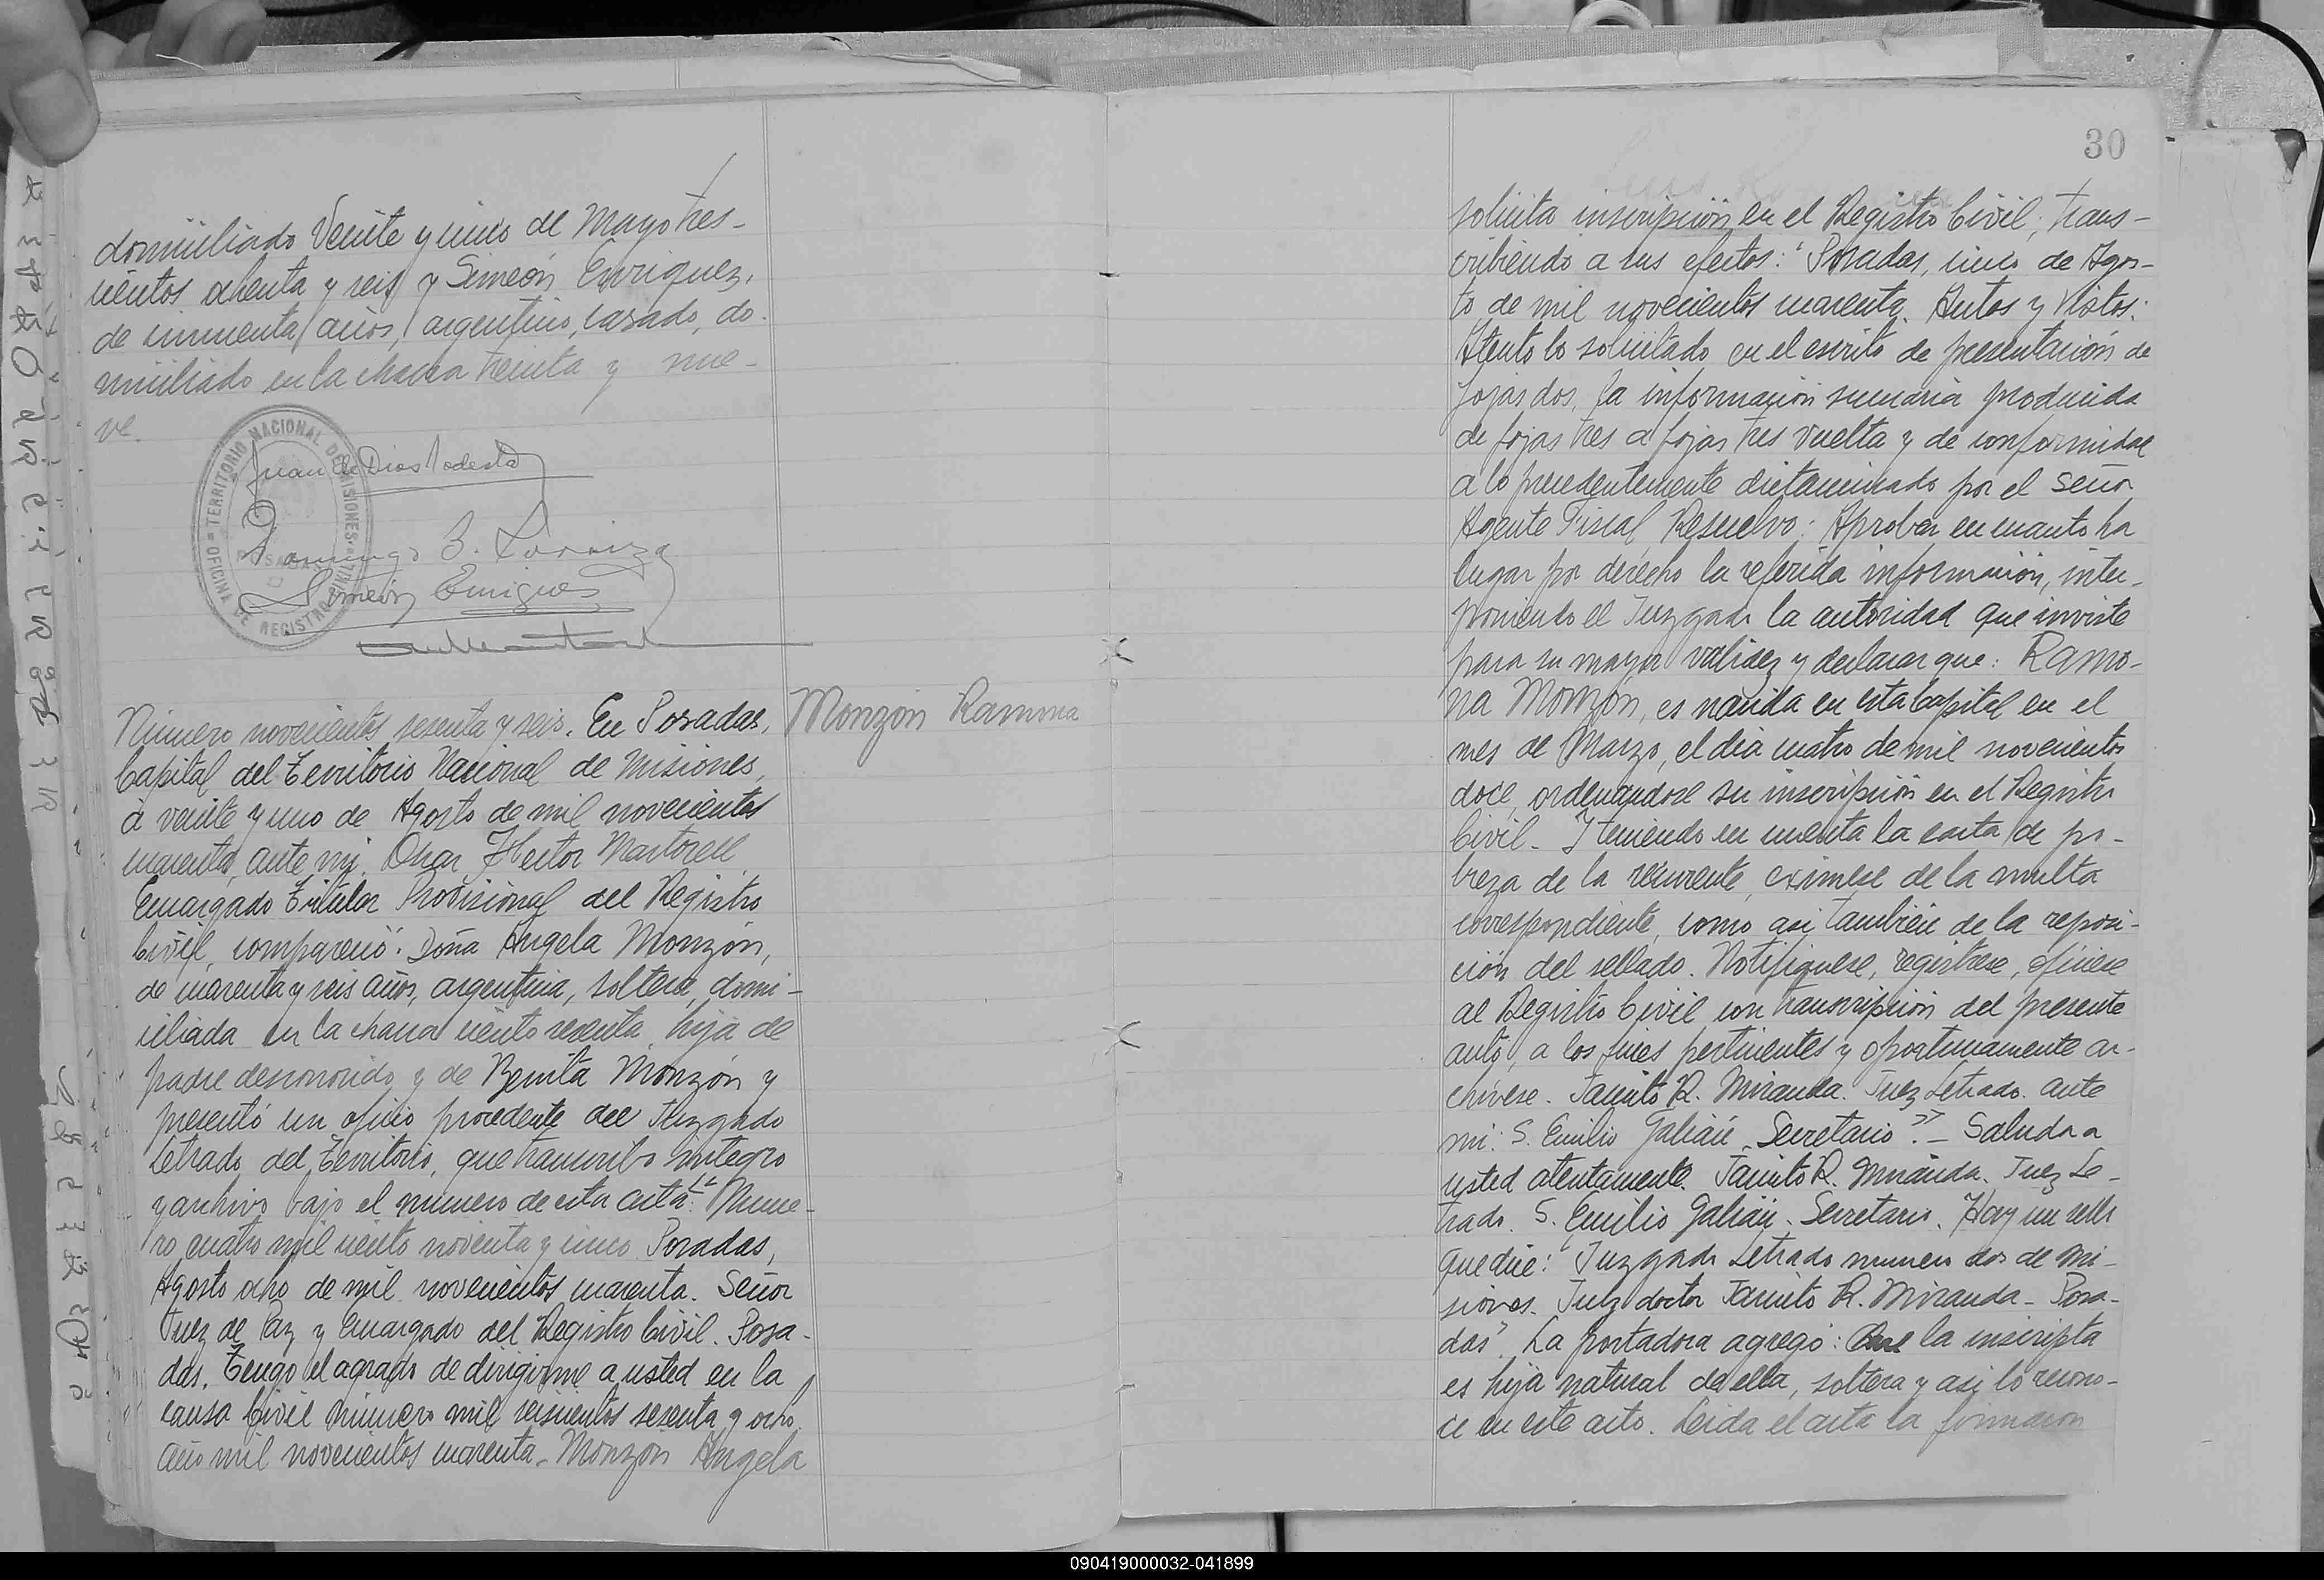 domiciliado Veinte y cinco de Mayo tres-
cientos ochenta y seis y Simeón Enriquez,
de cincuenta años, argentino, casado, do-
miciliado en la chacra treinta y nue-
ve.
TERRITORIO NACIONAL DE MISIONES
OFICINA DE REGISTRO CIVIL
POSADAS
Juan de Dios
Domingo B.
Simeón Enriquez
Número novecientos sesenta y seis. En Posadas,
Monzón Ramona
Capital del Territorio Nacional de Misiones,
a veinte y uno de Agosto de mil novecientos
cuarenta, ante mi, Oscar Hector Martorell
Encargado Titular Provisional del Registro
Civil, compareció: Doña Angela Monzón,
de cuarenta y seis años, argentina, soltera, domi-
ciliada en la chacra ciento sesenta, hija de
padre desconocido y de Benita Monzón y
presentó un oficio procedente del Juzgado
Letrado del Territorio, que transcribo íntegro
y archivo bajo el número de esta acta: "Núme-
ro cuatro mil ciento noventa y cinco Posadas,
Agosto ocho de mil novecientos cuarenta. Señor
Juez de Paz y Encargado del Registro Civil. Posa-
das. Tengo el agrado de dirigirme a usted en la
causa Civil número mil seiscientos sesenta y ocho
año mil novecientos cuarenta. Monzón Angela
30
solicita inscripción en el Registro Civil, trans-
cribiendo a sus efectos: "Posadas, cinco de Agos-
to de mil novecientos cuarenta. Autos y Vistos:
Atento lo solicitado en el escrito de presentación de
fojas dos, la información sumaria producida
de fojas tres a fojas tres vuelta y de conformidad
a lo precedentemente dictaminado por el señor
Agente Fiscal, Resuelvo: Aprobar en cuanto ha
lugar por derecho la referida información, inter-
poniendo el Juzgado la autoridad que inviste
para su mayor validez y declarar que: Ramo-
na Monzón, es nacida en esta Capital en el
mes de Marzo, el día cuatro de mil novecientos
doce, ordenandose su inscripción en el Registro
Civil. Y teniendo en cuenta la carta de po-
breza de la recurrente, exímese de la multa
correspondiente, como así también de la reposi-
ción del sellado. Notifíquese, regístrese, ofíciese
al Registro Civil con transcripción del presente
auto, a los fines pertinentes y oportunamente ar-
chívese. Jacinto R. Miranda. Juez Letrado. Ante
mi: S. Emilio Galiáii, Secretario". - Saluda a
usted atentamente. Jacinto R. Miranda. Juez Le-
trado. S. Emilio Galiáii. Secretario. Hay un sello
que dice: "Juzgado Letrado número dos de Mi-
siones. Juez doctor Jacinto R. Miranda - Posa-
das". La portadora agregó: Que la inscripta
es hija natural de ella, soltera y así lo recono-
ce en este acto. Leida el acta la firmaron
090419000032-041899